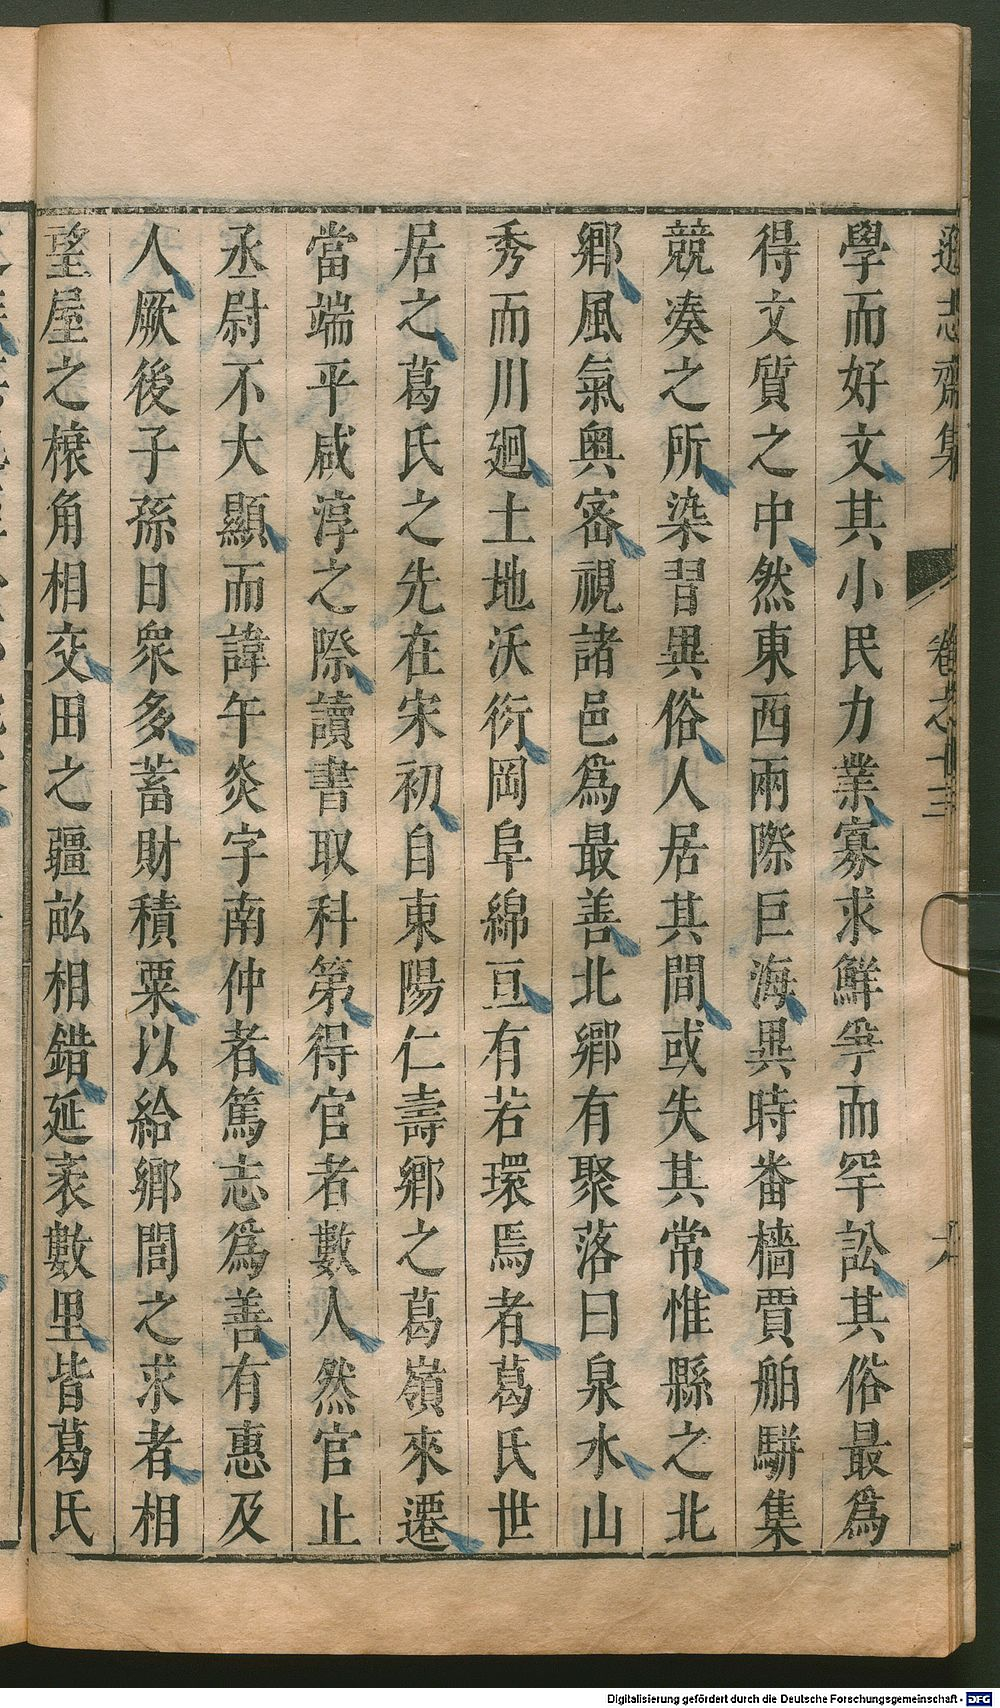 遜志齋集
卷之十三
學而好文其小民力業寡求鮮爭而罕訟其俗最爲
得文質之中然東西兩際巨海異時番檣賈舶駢集
競凑之所染習異俗人居其間或失其常惟縣之北
鄉風氣奥宻視諸邑爲最善北鄉有聚落曰泉水山
秀而川廻土地沃衍岡阜綿亘有若環焉者葛氏世
居之葛氏之先在宋初自東陽仁壽鄉之葛嶺來遷
當端平咸淳之際讀書取科第得官者數人然官止
丞尉不大顯而諱午炎字南仲者篤志爲善有惠及
人厥後子孫日衆多蓄財積粟以給鄉閭之求者相
望屋之榱角相交田之疆畝相錯延袤數里皆葛氏
Digitalisierung gefördert durch die Deutsche Forschungsgemeinschaft - DFG